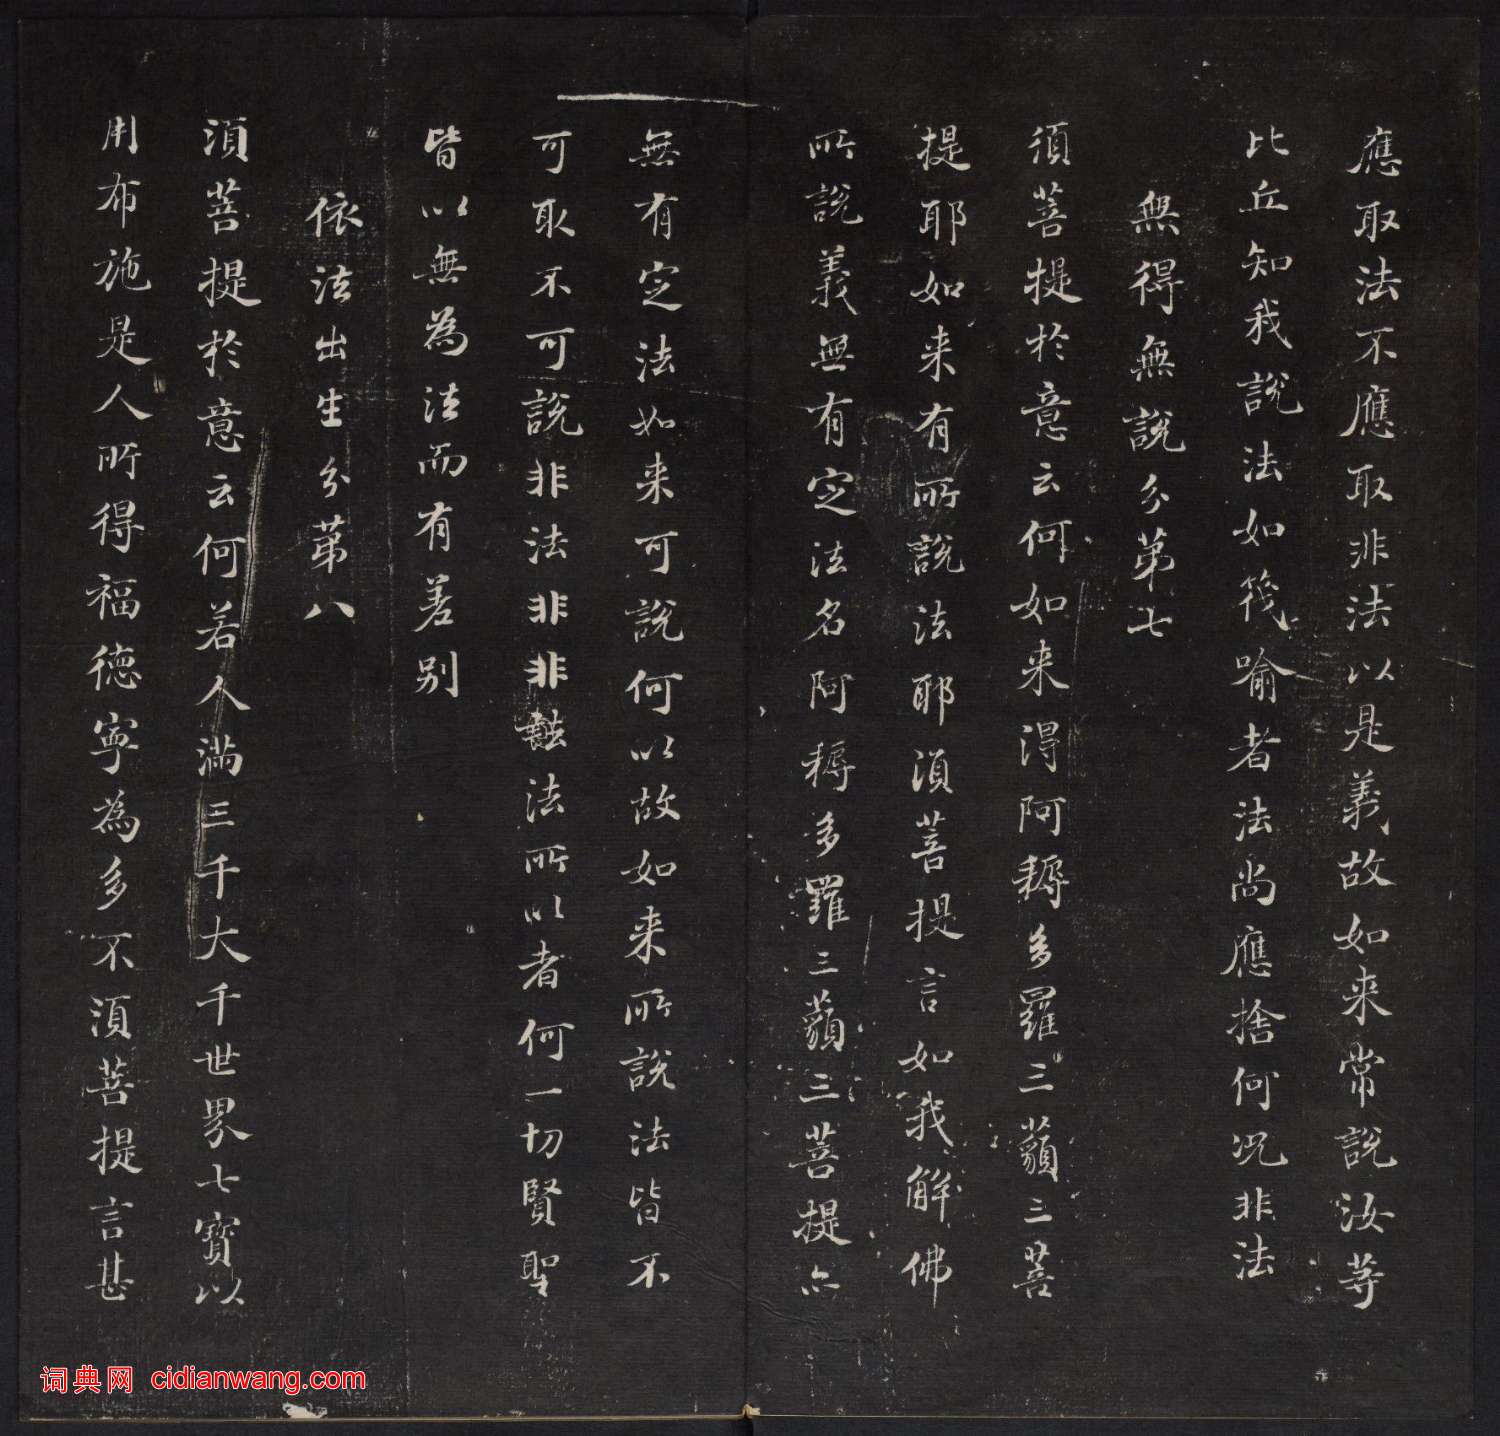 應取法不應取非法以是義故如来常說汝等
比丘知我說法如筏喻者法尚應捨何况非法
無得無說分第七
須菩提於意云何如来得阿耨多羅三藐三菩
提耶如来有所說法耶須菩提言如我解佛
所說義無有定法名阿耨多羅三藐三菩提亦
無有定法如来可說何以故如来所說法皆不
可取不可說非法非非法所以者何一切賢聖
皆以無為法而有差别
依法出生分第八
須菩提於意云何若人滿三千大千世界七寶以
用布施是人所得福德寧為多不須菩提言甚
词典网 cidianwang.com